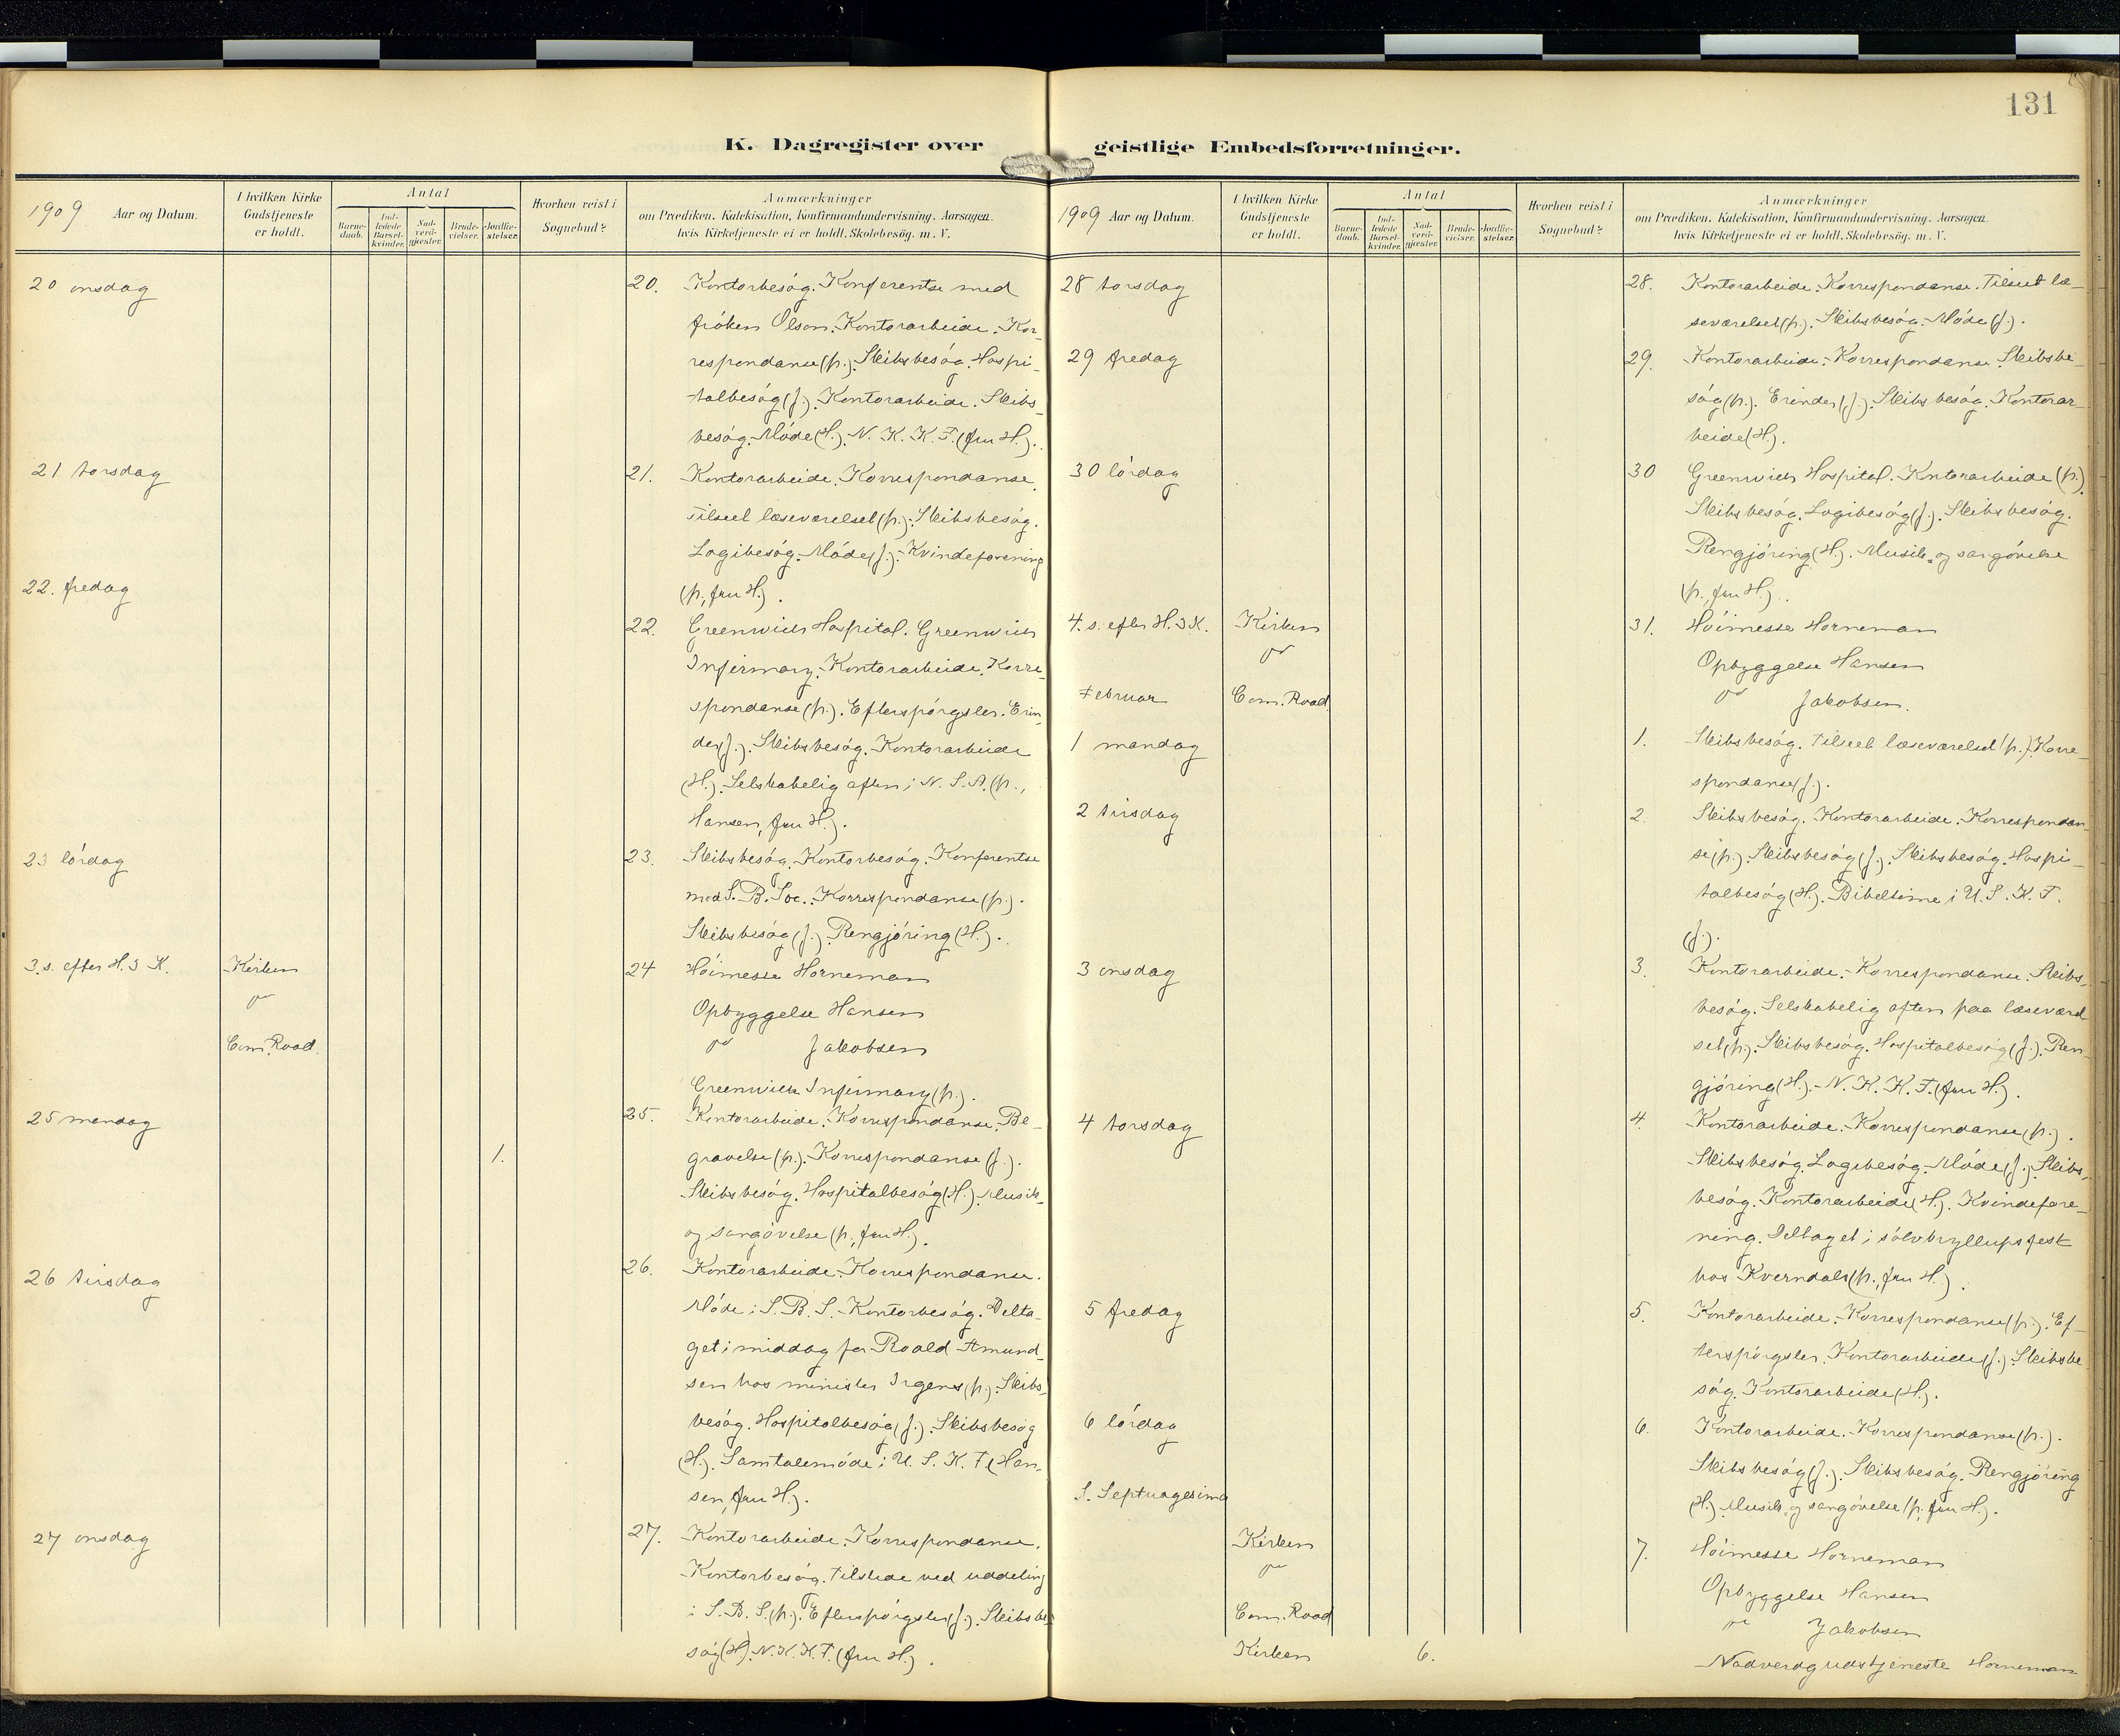 131
K. Dagregister over geistlige Embedsforretninger.
1909 Aar og Datum.
I hvilken Kirke Gudstjeneste er holdt.
Antal
Barne-daab.
Ind-ledede Barsel-kvinder.
Nad-verd-gjæster.
Brude-vielser.
Jordfæ-stelser.
Hvorhen reist i Sognebud?
Anmærkninger
om Prædiken, Katekisation, Konfirmandundervisning. Aarsagen,
hvis Kirketjeneste ei er holdt, Skolebesøg. m. V.
20 onsdag
20. Kontorbesøg. Konferentse med
frøken Olson. Kontorarbeide. Kor-
respondanse (p.). Skibsbesøg. Hospi-
talbesøg (J.). Kontorarbeide. Skibs-
besøg. Møde (H.). N. K. K. F. (fru H.).
21 torsdag
21. Kontorarbeide. Korrespondanse.
Tilseet læseværelset (p.). Skibsbesøg.
Logibesøg. Møde (J.). Kvindeforening
(p., fru H.).
22. fredag
22. Greenwich Hospital. Greenwich
Infirmary. Kontorarbeide. Korre-
spondanse (p.). Efterspørgsler. Erin-
der (J.). Skibsbesøg. Kontorarbeide
(H.). Selskabelig aften i N. S. A. (p.,
Hansen, fru H.).
23 lørdag
23. Skibsbesøg. Kontorbesøg. Konferentse
med S. B. Soc. Korrespondanse (p.).
Skibsbesøg (J.). Rengjøring (H.).
3. s. efter H. 3 K. Kirken
24 Høimesse Horneman
Opbyggelse Hansen
Com. Road. Jakobsen
Greenwich Infirmary (p.).
25 mandag
25. Kontorarbeide. Korrespondanse. Be-
1. gravelse (p.). Korrespondanse (J.).
Skibsbesøg. Hospitalbesøg (H.). Musik-
og sangøvelse (p., fru H.).
26 tirsdag
26. Kontorarbeide. Korrespondanse.
Møde i S. B. S. Kontorbesøg. Delta-
get i middag for Roald Amund-
sen hos minister Irgens (p.). Skibs-
besøg. Hospitalbesøg (J.). Skibsbesøg
(H.). Samtalemøde i U. S. K. F. (Han-
sen, fru H.).
27 onsdag
27. Kontorarbeide. Korrespondanse.
Kontorbesøg. Tilstede ved uddeling
i S. B. S. (p.). Efterspørgsler (J.). Skibsbe-
søg (H). N. K. K. F. (fru H.).
1909 Aar og Datum.
I hvilken Kirke Gudstjeneste er holdt.
Antal
Barne-daab.
Ind-ledede Barsel-kvinder.
Nad-verd-gjæster.
Brude-vielser.
Jordfæ-stelser.
Hvorhen reist i Sognebud?
Anmærkninger
om Prædiken, Katekisation, Konfirmandundervisning. Aarsagen,
hvis Kirketjeneste ei er holdt, Skolebesøg. m. V.
28 torsdag
28. Kontorarbeide. Korrespondanse. Tilseet læ-
seværelset (p.). Skibsbesøg. Møde (J.).
29 fredag
29. Kontorarbeide. Korrespondanse. Skibsbe-
søg (p.). Erinder (J.). Skibsbesøg. Kontorar-
beide (H.).
30 lørdag
30 Greenwich Hospital. Kontorarbeide (p.).
Skibsbesøg. Logibesøg (J.). Skibsbesøg.
Rengjøring (H.). Musik- og sangøvelse
(p., fru H.).
4. s. efter H. 3 K. Kirken
31. Høimesse Horneman
Opbyggelse Hansen
Februar Com. Road
Jakobsen.
1 mandag
1. Skibsbesøg. Tilseet læseværelset (p.). Korre-
spondanse (J.).
2 tirsdag
2. Skibsbesøg. Kontorarbeide. Korrespondan-
se (p.). Skibsbesøg (J.). Skibsbesøg. Hospi-
talbesøg (H.). Bibeltime i U. S. K. F.
(J.).
3 onsdag
3. Kontorarbeide. Korrespondanse. Skibs-
besøg. Selskabelig aften paa læseværel-
set (p.). Skibsbesøg. Hospitalbesøg (J.). Ren-
gjøring (H.). N. K. K. F. (fru H.).
4 torsdag
4. Kontorarbeide. Korrespondanse (p.).
Skibsbesøg. Logibesøg. Møde (J.). Skibs-
besøg. Kontorarbeide (H.). Kvindefore-
ning. Deltaget i sølvbryllupsfest
hos Kverndals (p., fru H.).
5 fredag
5. Kontorarbeide. Korrespondanse (p.). Ef-
terspørgsler. Kontorarbeide (J.). Skibsbe-
søg. Kontorarbeide (H.).
6 lørdag
6. Kontorarbeide. Korrespondanse (p.).
Skibsbesøg (J.). Skibsbesøg. Rengjøring
(H.). Musik og sangøvelse (p., fru H.).
S. Septuagesima
Kirken 7. Høimesse Horneman
Opbyggelse Hansen
Com. Road Jakobsen
Kirken 6. Nadverdgudstjeneste Horneman